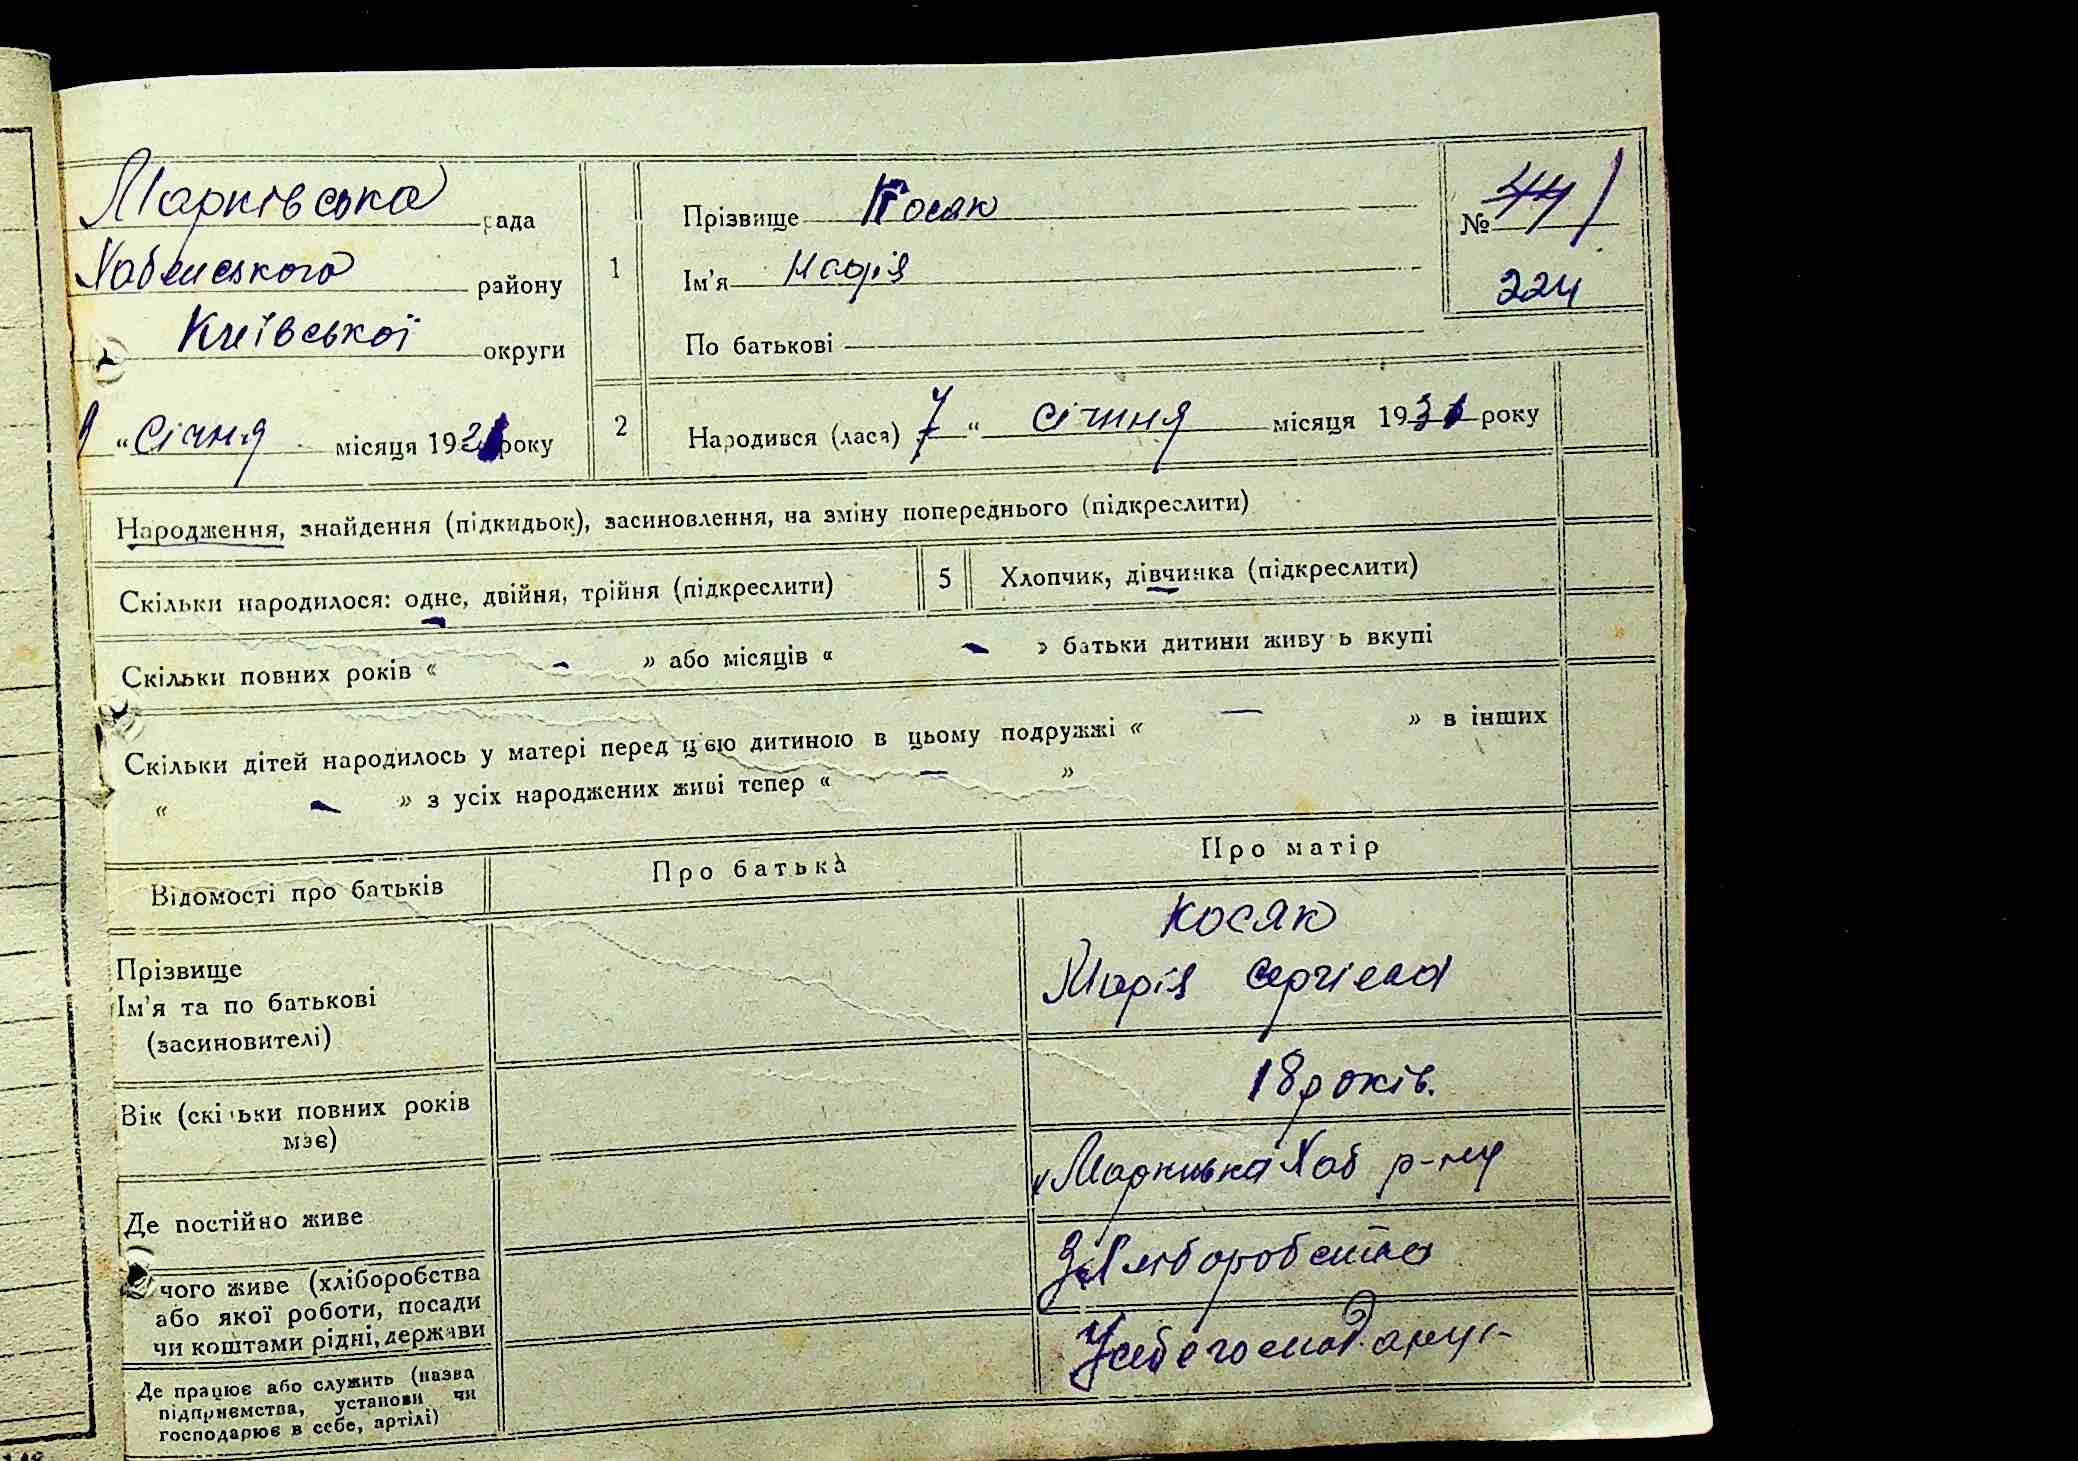 Марківська рада
Хабенського району
Київської округи
„Січня місяця 1931 року
1
Прізвище Косяк
Ім'я Марія
По батькові
№ 44 1
224
2
Народився (лася) 7 „ січня місяця 1931 року
Народження, знайдення (підкидьок), засиновлення, на зміну попереднього (підкреслити)
Скільки народилося: одне, двійня, трійня (підкреслити)
5
Хлопчик, дівчинка (підкреслити)
Скільки повних років « - » або місяців « - » батьки дитини живу ь вкупі
Скільки дітей народилось у матері перед цією дитиною в цьому подружжі « — » в інших
« - » з усіх народжених живі тепер « — »
Відомості про батьків
Про батька
Про матір
Прізвище
Ім'я та по батькові
(засиновителі)
Косяк
Марія Сергієвна
Вік (скільки повних років
має)
18 років.
Де постійно живе
Хаб р-ну
чого живе (хліборобства
або якої роботи, посади
чи коштами рідні, держави
Де працює або служить (назва
підприємства, установи чи
господарює в себе, артілі)